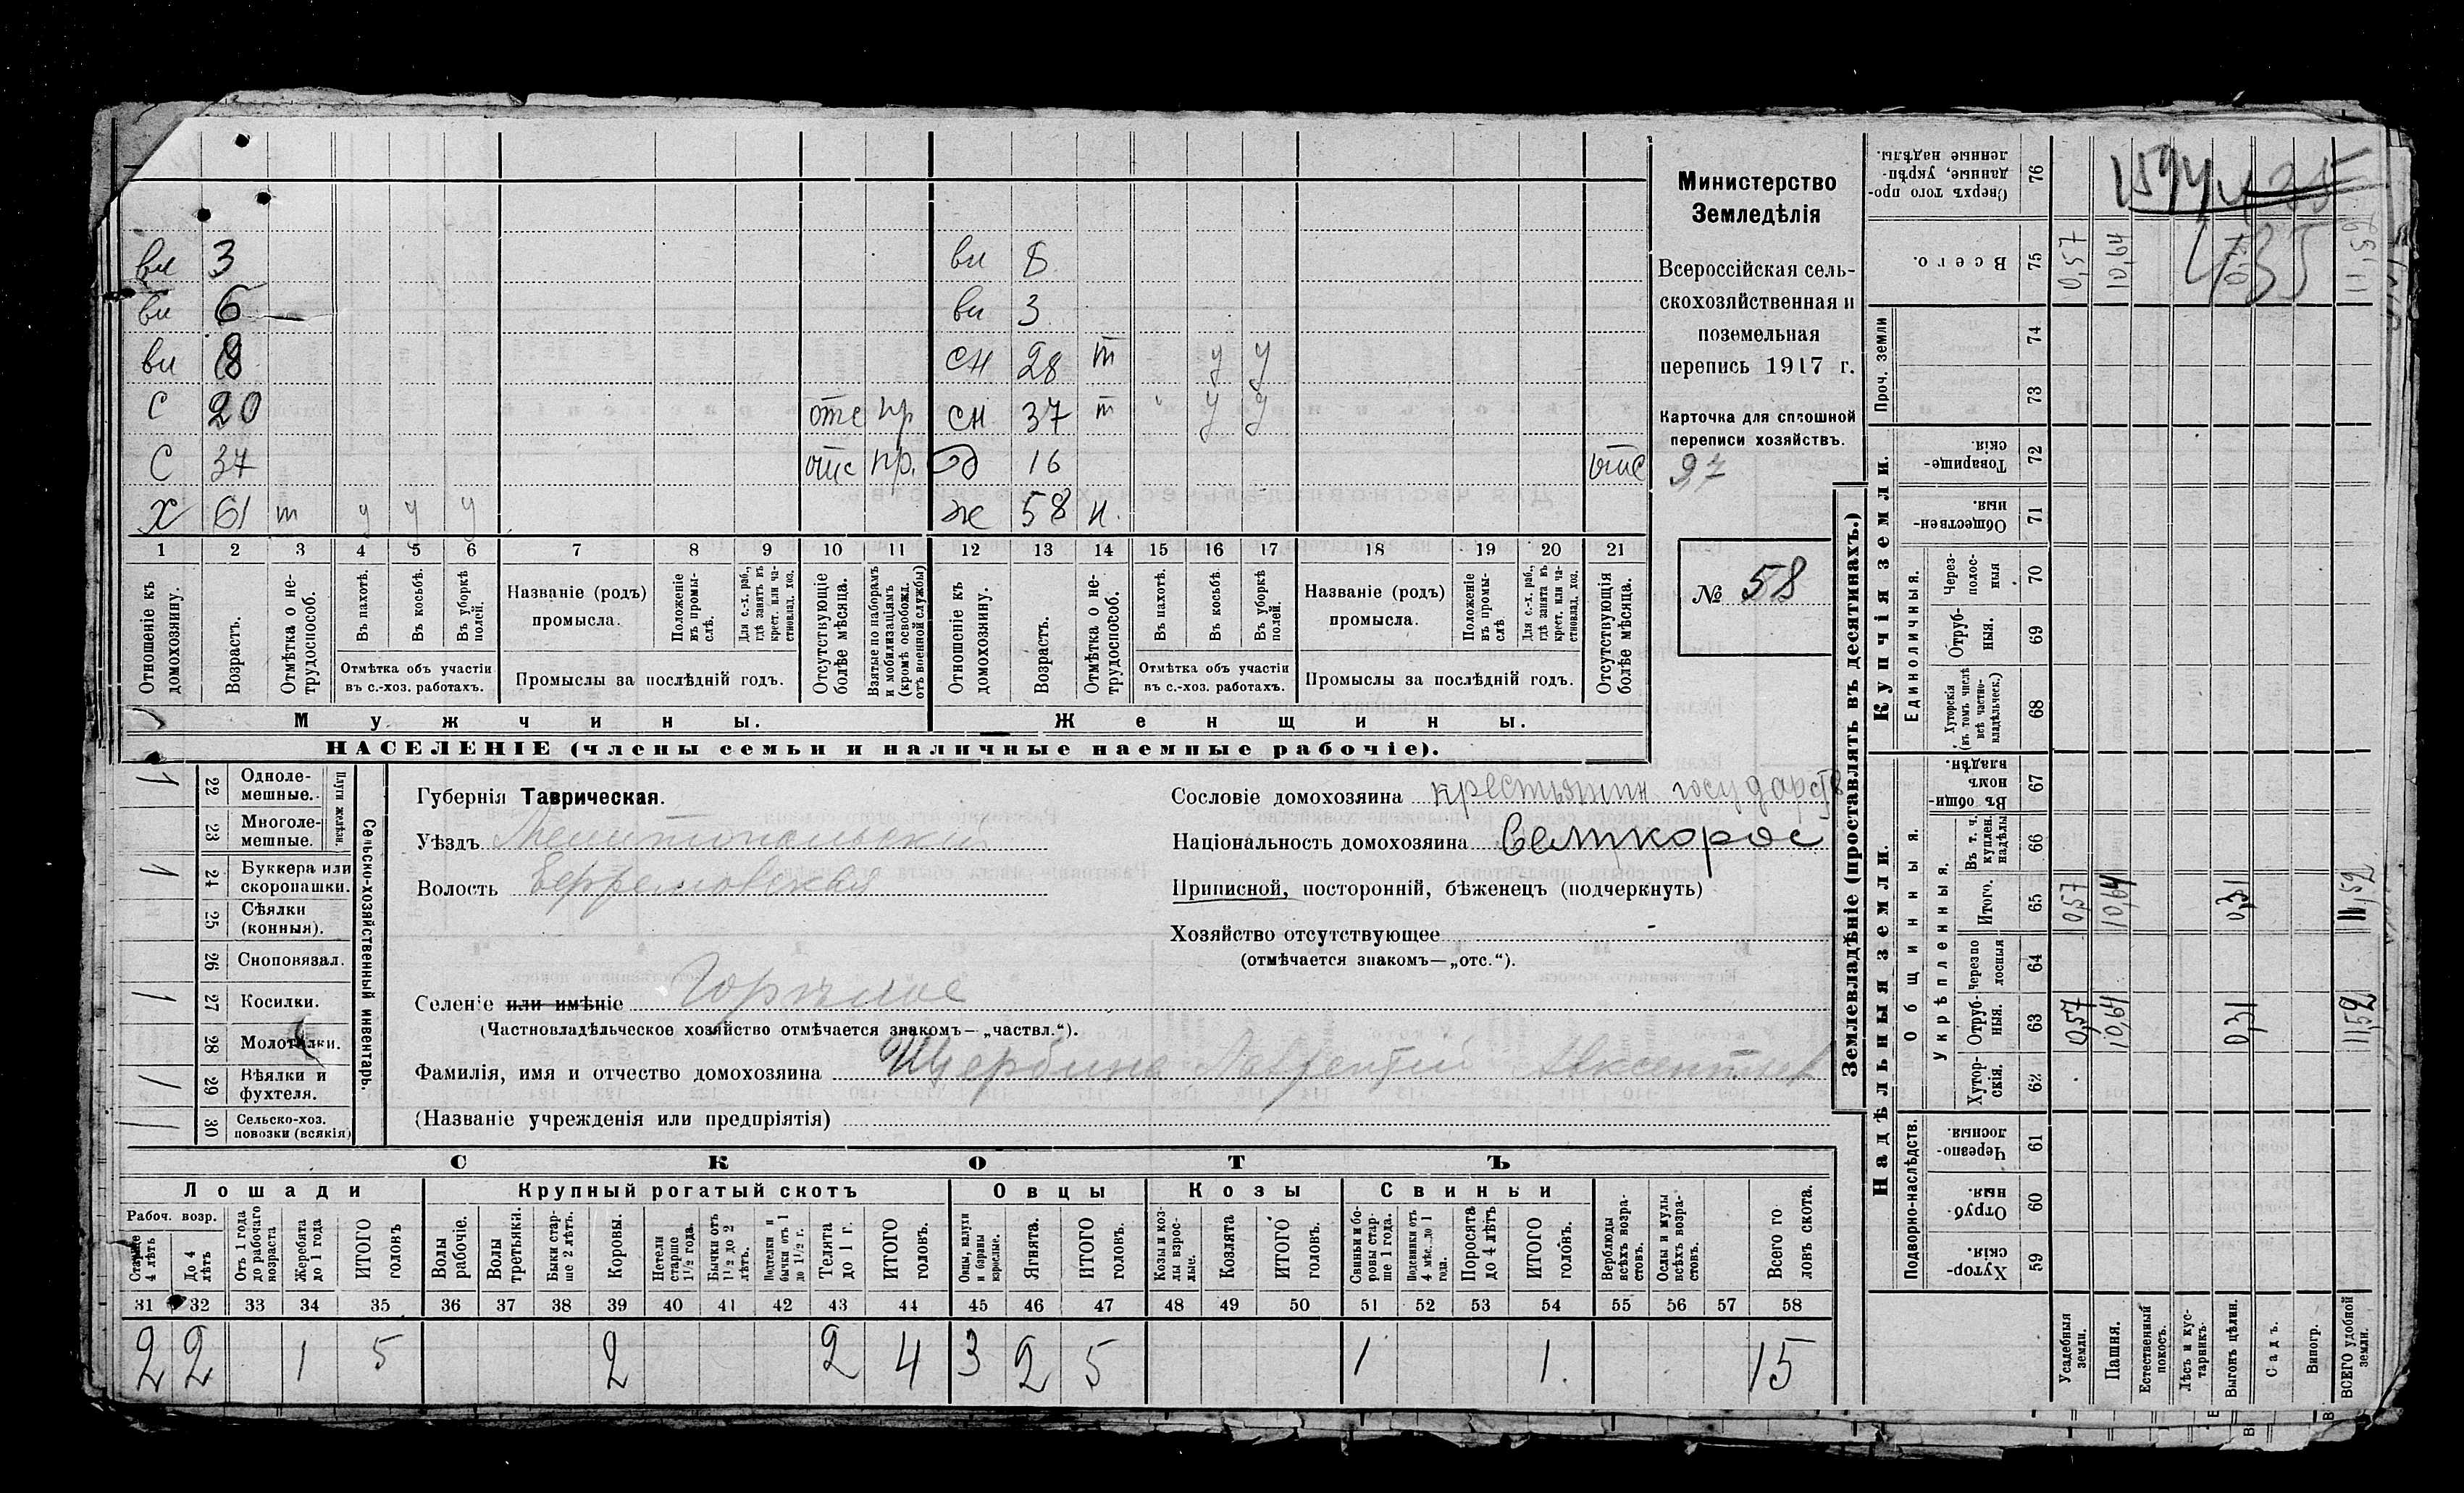 вн 3 вн 8
вн 6 вн 3
вн 8 сн 28 т у у
с 20 отс пр сн 37 т у у
с 37 отс пр. д 16 отс
х 61 т у у у ж 58 н.
1 2 3 4 5 6 7 8 9 10 11 12 13 14 15 16 17 18 19 20 21
Отношеніе къ домохозяину.
Возрастъ.
Отмѣтка о не-трудоспособ.
Въ пахотѣ.
Въ косьбѣ.
Въ уборкѣ полей.
Отмѣтка объ участіи
въ с.-хоз. работахъ.
Названіе (родъ)
промысла.
Положеніе въ промы-слѣ.
Для с.-х. раб., гдѣ занятъ въ крест. или ча-стновлад. хоз.
Промыслы за послѣдній годъ.
Отсутствующіе болѣе мѣсяца.
Взятые по наборамъ и мобилизаціямъ (кромѣ освобожд. отъ военной службы)
Отношеніе къ домохозяину.
Возрастъ.
Отмѣтка о не-трудоспособ.
Въ пахотѣ.
Въ косьбѣ.
Въ уборкѣ полей.
Отмѣтка объ участіи
въ с.-хоз. работахъ.
Названіе (родъ)
промысла.
Положеніе въ промы-слѣ
Для с.-х. раб., гдѣ занята въ крест. или ча-стновлад. хоз.
Промыслы за послѣдній годъ.
Отсутствующія болѣе мѣсяца.
Мужчины.
Женщины.
НАСЕЛЕНІЕ (члены семьи и наличные наемные рабочіе).
Министерство
Земледѣлія
Всероссійская сель-
скохозяйственная и
поземельная
перепись 1917 г.
Карточка для сплошной
переписи хозяйствъ.
97
№ 58
Сельско-хозяйственный инвентарь.
Плуги желѣзн.
1 22 Однолемешные.
23 Многолемешные.
1 24 Буккера или скоропашки.
25 Сѣялки (конныя).
26 Сноповязал.
1 27 Косилки.
28 Молотилки.
1 29 Вѣялки и фухтеля.
1 30 Сельско-хоз. повозки (всякія)
Губернія Таврическая.
Уѣздъ Мелитопольскій
Волость Ефремовская
Селеніе или имѣніе Горѣлое
(Частновладѣльческое хозяйство отмѣчается знакомъ — „частвл.“).
Фамилія, имя и отчество домохозяина Щербина Лаврентій Авксентіев
(Названіе учрежденія или предпріятія)
Сословіе домохозяина крестьянин государств
Національность домохозяина Великорос
Приписной, посторонній, бѣженецъ (подчеркнуть)
Хозяйство отсутствующее -
(отмѣчается знакомъ—„отс.“).
СКОТЪ
Лошади
Крупный рогатый скотъ
Овцы
Козы
Свиньи
Рабоч. возр.
Старше 4 лѣтъ
До 4 лѣтъ
Отъ 1 года до рабочаго возраста
Жеребята до 1 года
ИТОГО головъ
Волы рабочіе.
Волы третьяки.
Быки стар-ше 2 лѣтъ.
Коровы.
Нетели старше 1½ года.
Бычки отъ 1½ до 2 лѣтъ.
Подтелки и бычки отъ 1 до 1½ г.
Телята до 1 г.
ИТОГО головъ.
Овцы, валухи и бараны взрослые.
Ягнята.
ИТОГО головъ.
Козы и коз-лы взрос-лые.
Козлята
ИТОГО головъ.
Свиньи и бо-ровы стар-ше 1 года.
Подсвинки отъ 4 мѣс. до 1 года.
Поросята до 4 лѣтъ
ИТОГО головъ.
Верблюды всѣхъ возра-стовъ.
Ослы и мулы всѣхъ возра-стовъ.
Всего го-ловъ скота.
31 32 33 34 35 36 37 38 39 40 41 42 43 44 45 46 47 48 49 50 51 52 53 54 55 56 57 58
2 2 1 5 2 2 4 3 2 5 1 1. 15
Землевладѣніе (проставлять въ десятинахъ.)
Надѣльныя земли.
Купчія земли.
Проч. земли
Подворно-наслѣдств.
Общинныя.
Укрѣпленныя.
Единоличныя.
Сверхъ того про-данные, укрѣп-ленные надѣлы. 76
Всего. 75 0,57 10,64 11,52
74
73
Товарище-скія. 72
Обществен-ныя. 71
Через-полос-ныя 70
Отруб-ныя. 69
Хуторскія (въ томъ числѣ всѣ частно-владѣльческ.) 68
Въ общин-номъ владѣн. 67
Въ т. ч. куплен. надѣлы 66
Итого. 65 0,57 10,64 0,31 11,52
Черезпо-лосныя 64
Отруб-ныя. 63 0,57 10,64 0,31 11,52
Хутор-скія. 62
Черезпо-лосныя. 61
Отруб-ныя. 60
Хутор-скія. 59
Усадебныя земли.
Пашня.
Естественный покосъ.
Лѣсъ и кус-тарникъ.
Выгонъ цѣлин.
Садъ.
Виногр.
ВСЕГО удобной земли.
435